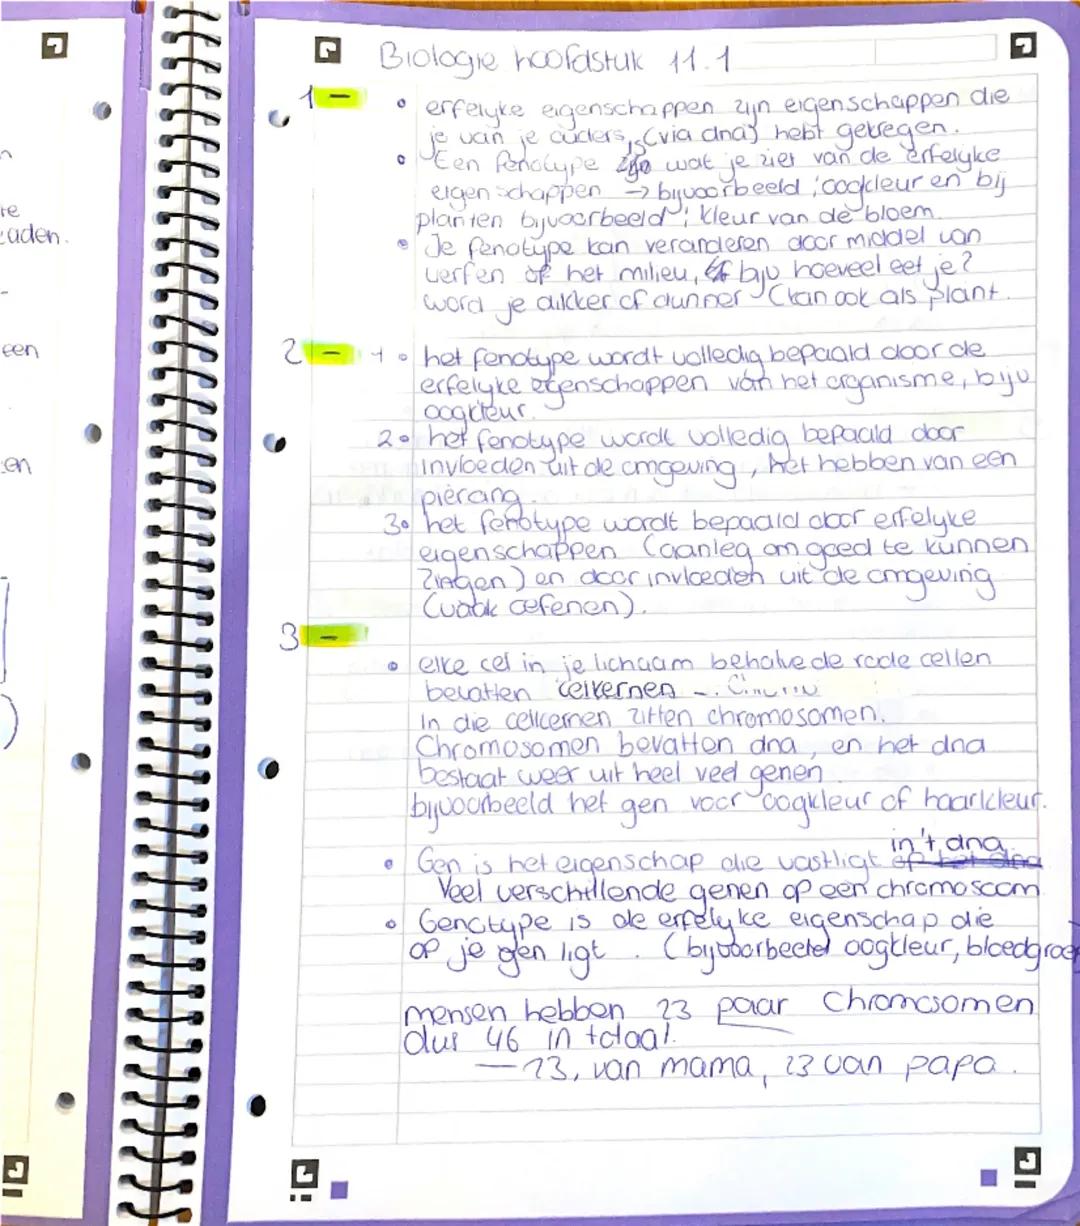 Biologie hoofdstuk 11.1
1 - • erfelyke eigenschappen zijn eigenschappen die
je van je ouders, (via dna) hebt gekregen.
• Een fenotype is wat je ziet van de erfelyke
eigenschappen → bijvoorbeeld; oogkleur en bij
planten bijvoorbeeld; kleur van de bloem.
• Je fenotype kan veranderen door middel van
verfen of het milieu, bijv hoeveel eet je?
word je dikker of dunner (kan ook als plant.
2 - 1 • het fenotype wordt volledig bepaald door de
erfelyke eigenschappen van het organisme, bijv
oogkleur.
2 • het fenotype wordt volledig bepaald door
invloeden uit de omgeving, het hebben van een
piercing.
3 • het fenotype wordt bepaald door erfelyke
eigenschappen (aanleg om goed te kunnen
zingen) en door invloeden uit de omgeving
(vaak oefenen).
3 -
• elke cel in je lichaam behalve de rode cellen
bevatten celkernen
In die celkernen zitten chromosomen.
Chromosomen bevatten dna, en het dna
bestaat weer uit heel veel genen.
bijvoorbeeld het gen voor oogkleur of haarkleur.
• Gen is het eigenschap die vastligt in't dna
Veel verschillende genen op een chromosoom
• Genotype is de erfelyke eigenschap die
op je gen ligt. (bijvoorbeeld oogkleur, bloedgroep
mensen hebben 23 paar Chromosomen
dus 46 in totaal.
— 23, van mama, 23 van papa.
te
aden.
-
een
en